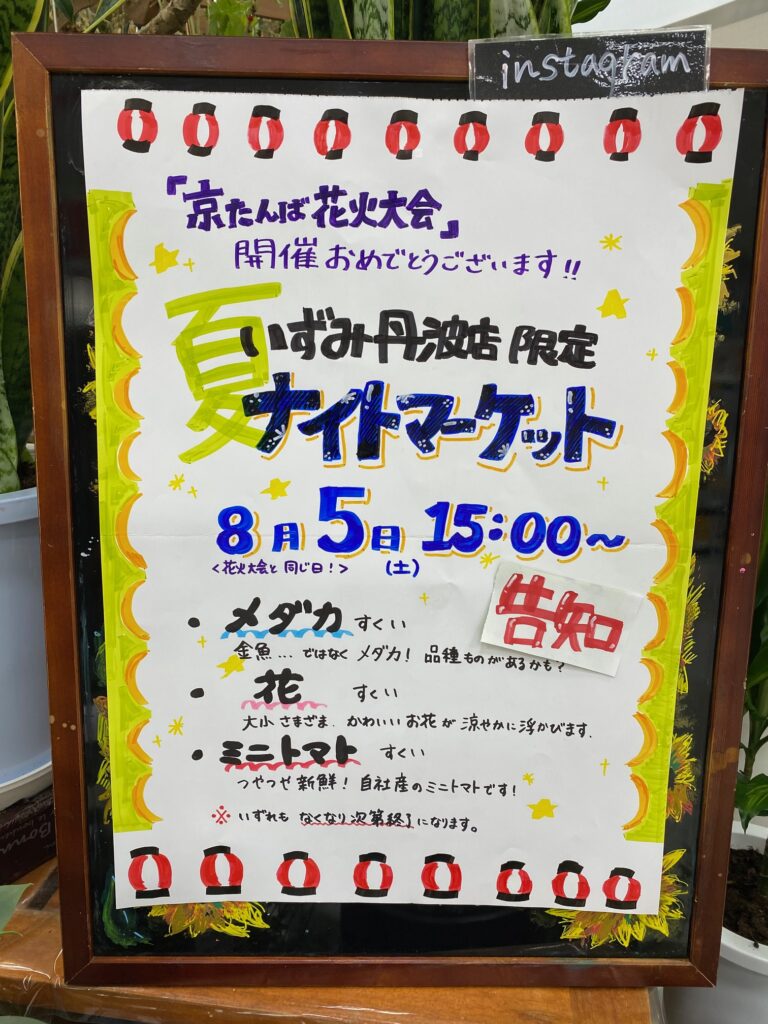 instagram
「京たんば花火大会」
開催おめでとうございます!!
夏
いずみ丹波店限定
ナイトマーケット
8月5日 15:00〜
<花火大会と同じ日!> (土)
告知
・メダカすくい
金魚...ではなくメダカ! 品種ものがあるかも?
・花 すくい
大小さまざま、かわいいお花が涼やかに浮かびます.
・ミニトマト すくい
つやつせ新鮮! 自社産のミニトマトです!
※いずれもなくなり次第終了になります。